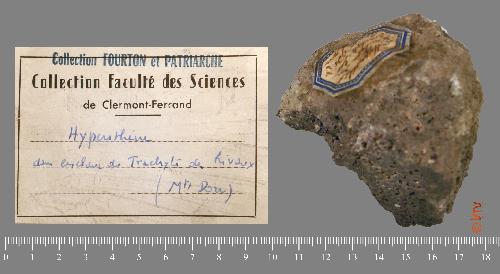 Collection FOURTON et PATRIARCHE
Collection Faculté des Sciences
de Clermont-Ferrand
Hypersthène
dans enclave de Trachyte de
(Mts Dore)
0 1 2 3 4 5 6 7 8 9 10 11 12 13 14 15 16 17 18